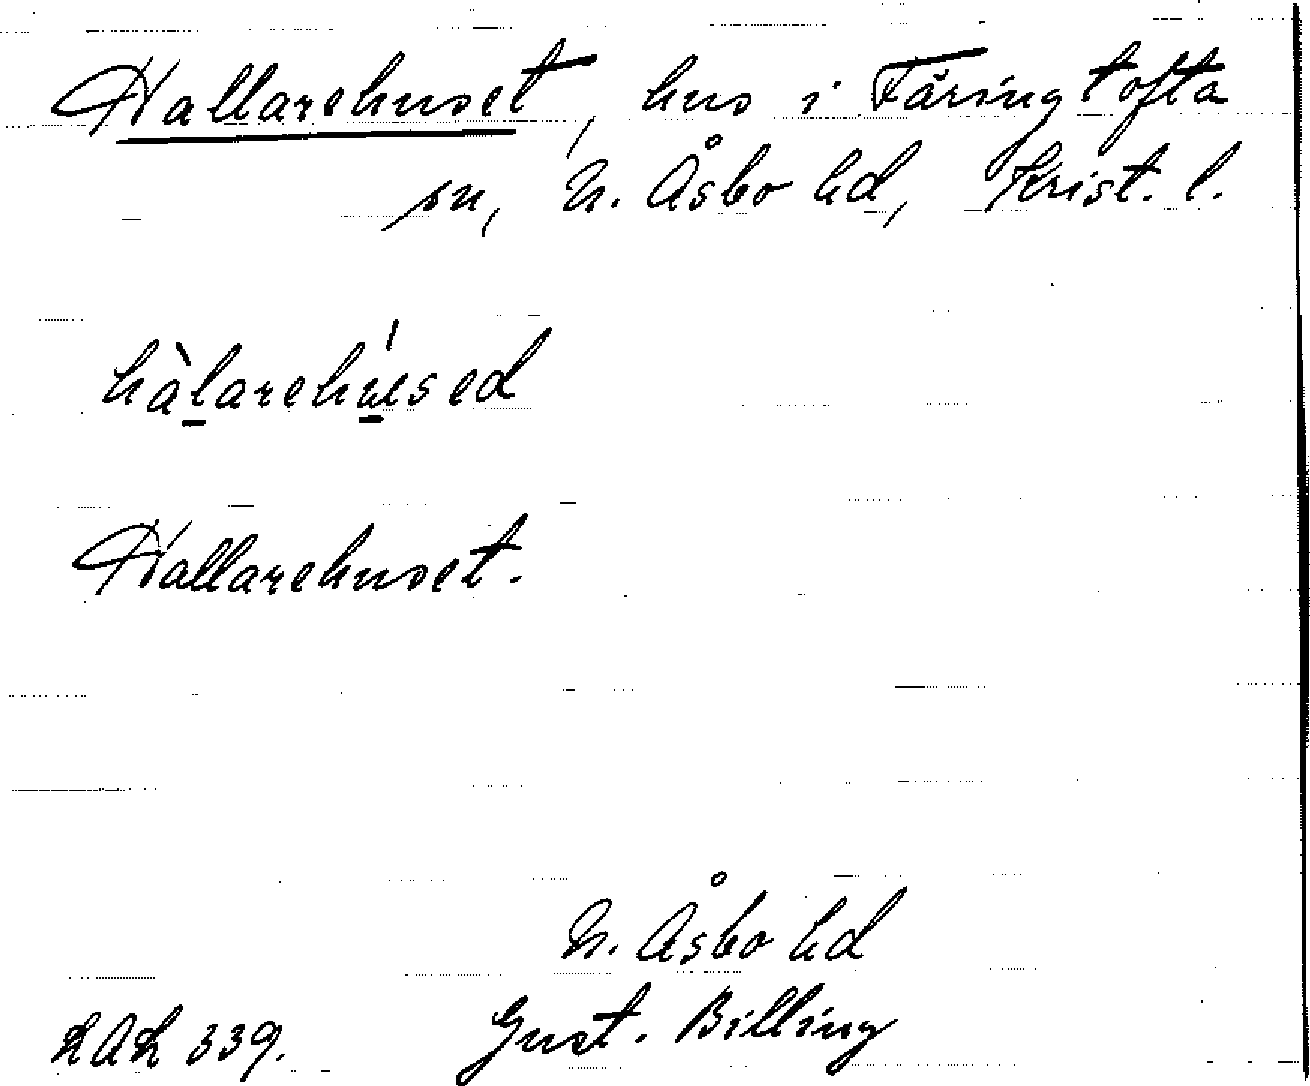 Hallarehuset, hus i Färingtofta
sn, N. Åsbo hd, Krist. l.
hàl̠arehú̠sed
Hallarehuset.
N. Åsbo hd
LAL 339. Gust. Billing